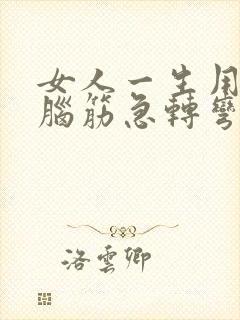 女人一生用
腦筋急轉彎
洛雲卿